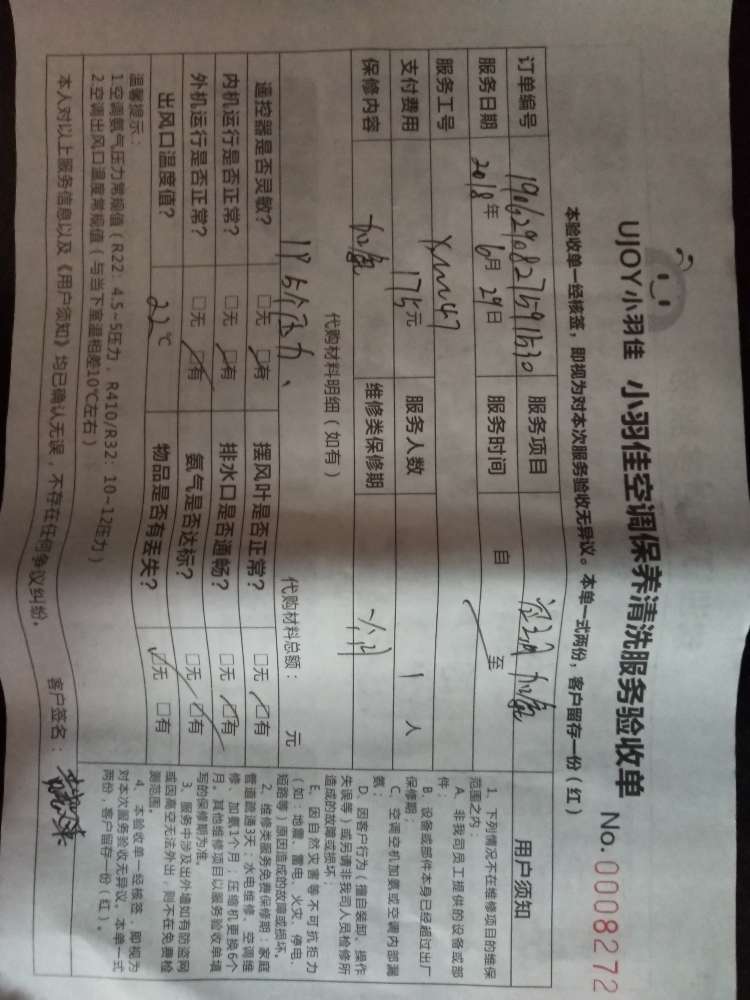 UJOY小羽佳 小羽佳空调保养清洗服务验收单 No. 0008272
本验收单一经核签，即视为对本次服务验收无异议。本单一式两份，客户留存一份（红）
订单编号 服务项目 加氟
服务日期 2018年6月29日 服务时间 自 至
服务工号
支付费用 175元 服务人数 1 人
保修内容 加氟 维修类保修期 一个月
代购材料明细（如有） 代购材料总额： 元
遥控器是否灵敏？ □无 ☑有 摆风叶是否正常？ □无 ☑有
内机运行是否正常？ □无 ☑有 排水口是否通畅？ □无 ☑有
外机运行是否正常？ □无 ☑有 氨气是否达标？ □无 ☑有
出风口温度值？ 22℃ 物品是否有丢失？ ☑无 □有
温馨提示：
1空调氨气压力常规值（R22：4.5~5压力，R410/R32：10~12压力）
2空调出风口温度常规值（与当下室温相差10℃左右）
本人对以上服务信息以及《用户须知》均已确认无误，不存在任何争议纠纷。
客户签名：
用户须知
1、下列情况不在维修项目的维保
范围之内：
A、非我司员工提供的设备或部
件；
B、设备或部件本身已经超过出厂
保修期；
C、空调空机加氨或空调内部漏
氨；
D、因客户行为（擅自装卸、操作
失误等）或另请非我司人员检修所
造成的故障或损坏；
E、因自然灾害等不可抗拒力
（如：地震、雷电、火灾、停电、
短路等）原因造成的故障或损坏。
2、维修类服务免费保修期：家庭
管道疏通3天；水电维修、空调维
修、加氨1个月；压缩机更换6个
月。其他维修项目以服务验收单填
写的保修期为准。
3、服务中涉及出外墙如有防盗网
或因高空无法外出，则不在免费检
测范围。
4、本验收单一经核签，即视为
对本次服务验收无异议。本单一式
两份，客户留存一份（红）。